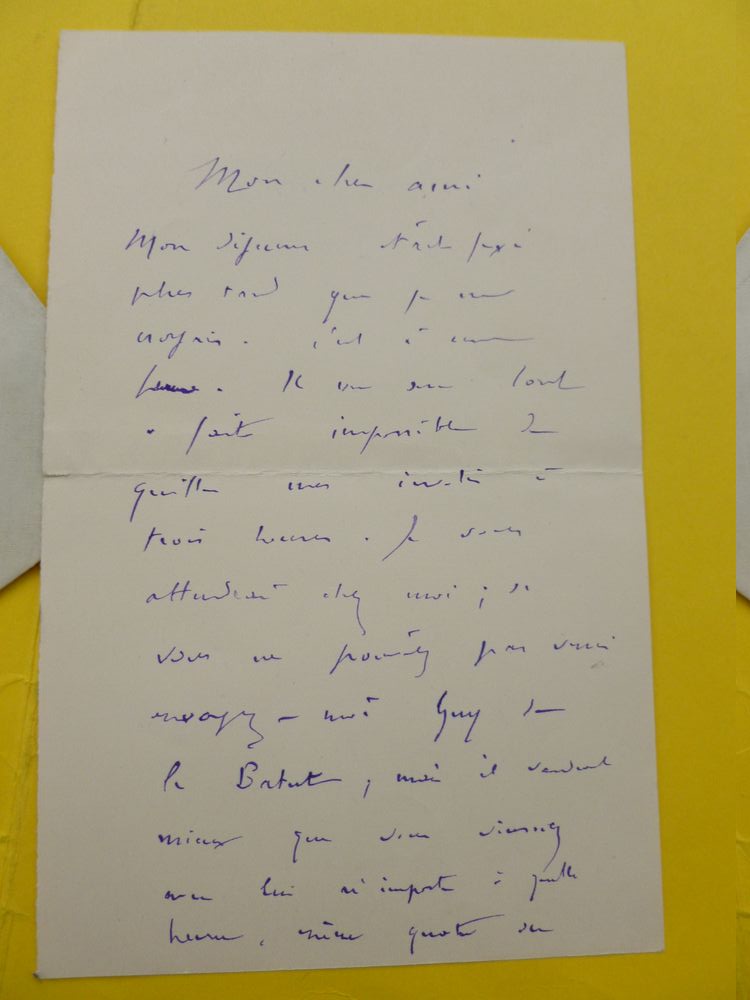 Mon cher ami
Mon déjeuner était fixé
plus tard que je ne
croyais. c'est à une
heure. Il me sera tout
à fait impossible de
quitter mes invités à
trois heures. Je vous
attendrai chez moi ; si
vous ne pouvez pas venir
envoyez-moi Guy de
la Batut, mais il vaudrait
mieux que vous veniez
avec lui n'importe à quelle
heure, même quatre ou